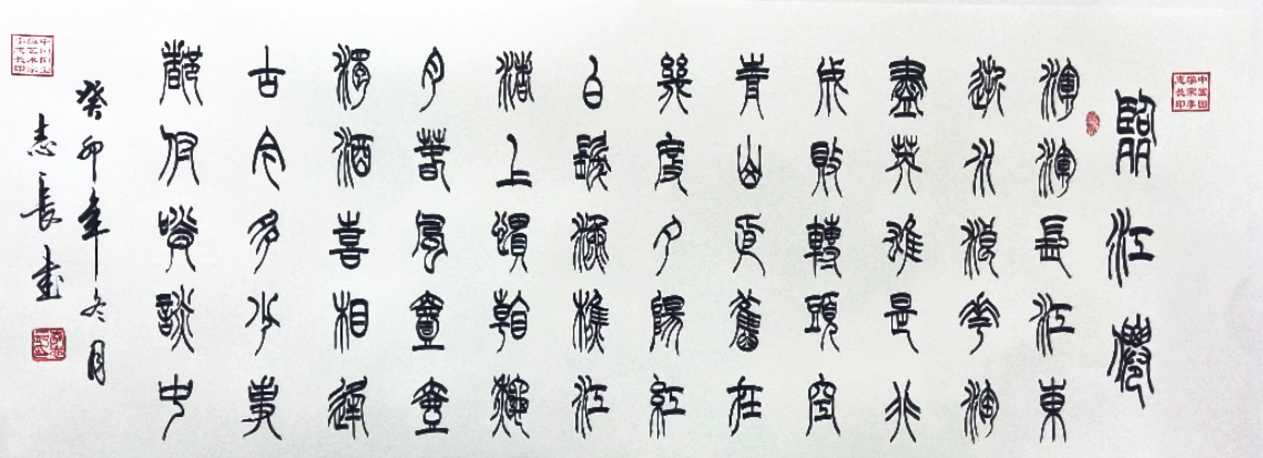 臨江僊
滾滾長江東
逝水浪花淘
盡英雄是非
成敗轉頭空
青山依舊在
幾度夕陽紅
白髮漁樵江
渚上慣看秋
月春風壹壺
濁酒喜相逢
古今多少事
都付笑談中
癸卯年冬月
志長書